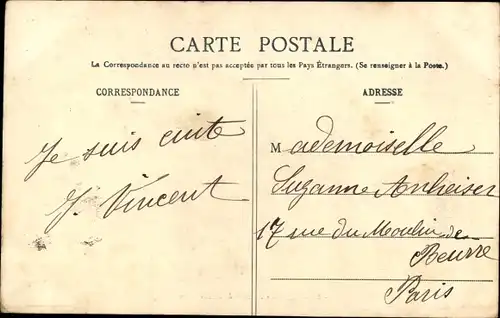 CARTE POSTALE
La Correspondance au recto n'est pas acceptée par tous les Pays Étrangers. (Se renseigner à la Poste.)
CORRESPONDANCE
Je suis cuite
J. Vincent
ADRESSE
Mademoiselle
Suzanne Anheiser
17 rue du Moulin de
Beurre
Paris